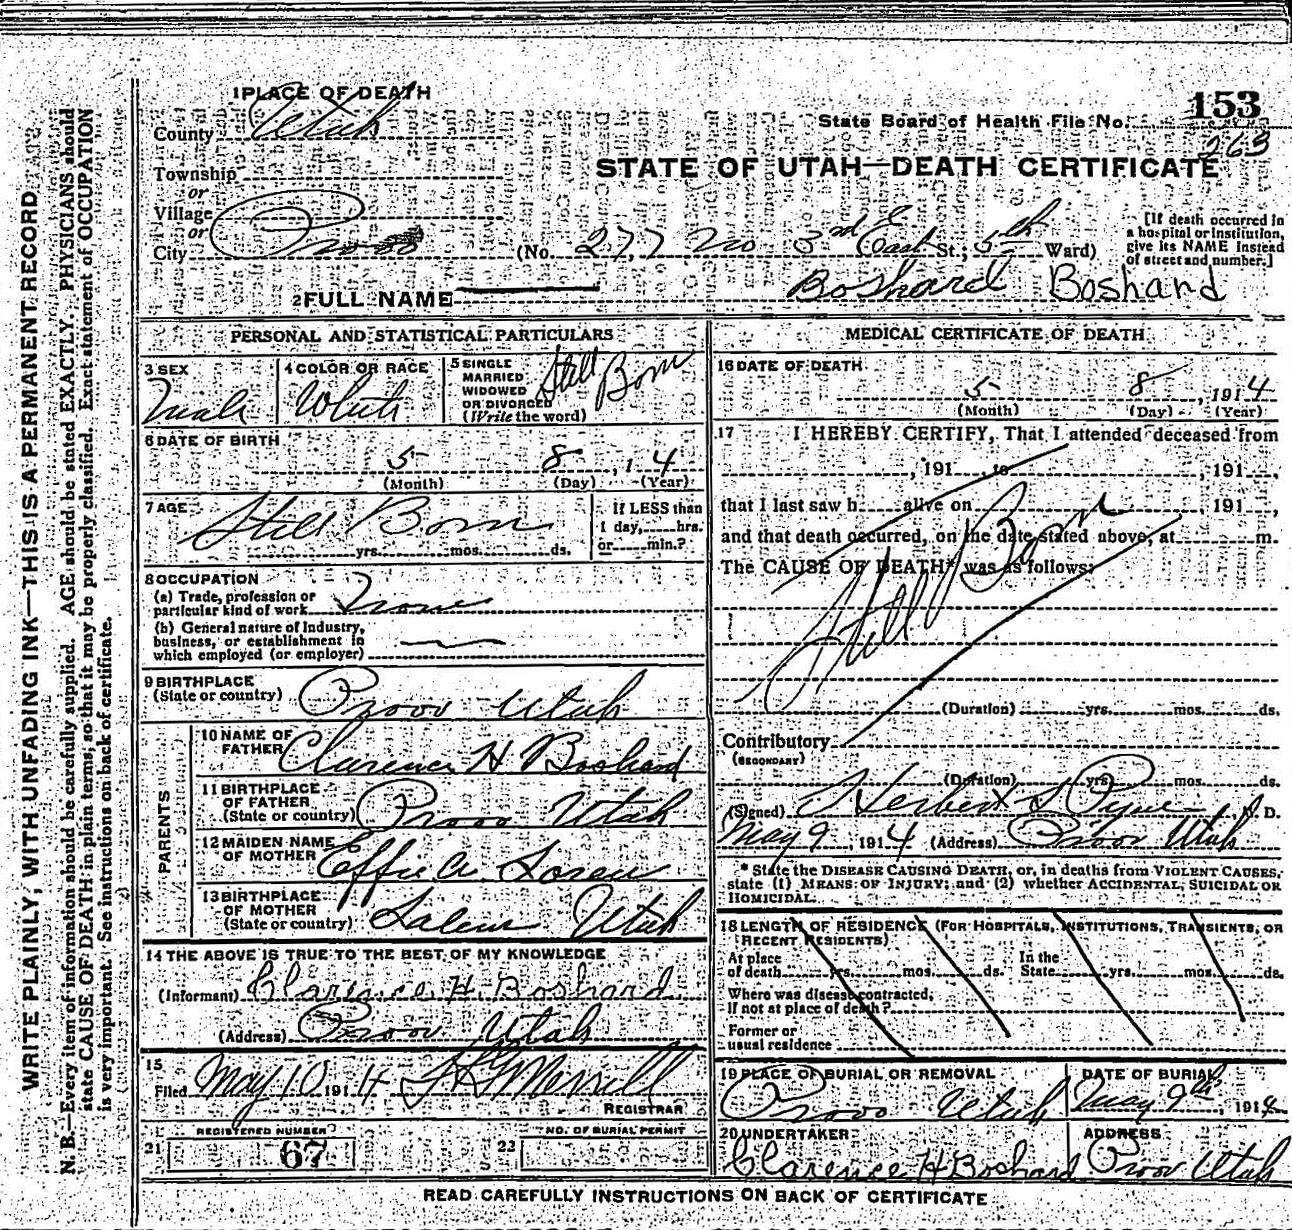 WRITE PLAINLY, WITH UNFADING INK—THIS IS A PERMANENT RECORD
N. B.—Every item of information should be carefully supplied. AGE should be stated EXACTLY. PHYSICIANS should
state CAUSE OF DEATH in plain terms, so that it may be properly classified. Exact statement of OCCUPATION
is very important. See instructions on back of certificate.
1 PLACE OF DEATH
County Utah
Township
or
Village
or
City Provo
153
State Board of Health File No.
263
STATE OF UTAH—DEATH CERTIFICATE
(No. 277 No 3rd East St.; 5th Ward)
[If death occurred in
a hospital or institution,
give its NAME instead
of street and number.]
2 FULL NAME Boshard Boshard
PERSONAL AND STATISTICAL PARTICULARS
3 SEX
Male
4 COLOR OR RACE
White
5 SINGLE
MARRIED
WIDOWED
OR DIVORCED
(Write the word)
Still Born
6 DATE OF BIRTH
5 8, 1 4
(Month) (Day) (Year)
7 AGE
Still Born
yrs. mos. ds.
If LESS than
1 day, hrs.
or min.?
8 OCCUPATION
(a) Trade, profession or
particular kind of work None
(b) General nature of Industry,
business, or establishment in
which employed (or employer)
9 BIRTHPLACE
(State or country) Provo Utah
PARENTS
10 NAME OF
FATHER Clarence H Boshard
11 BIRTHPLACE
OF FATHER
(State or country) Provo Utah
12 MAIDEN NAME
OF MOTHER Effie
13 BIRTHPLACE
OF MOTHER
(State or country) Salem Utah
14 THE ABOVE IS TRUE TO THE BEST OF MY KNOWLEDGE
(Informant) Clarence H. Boshard
(Address) Provo Utah
15
Filed May 10 1914 Merrill
REGISTRAR
21 REGISTERED NUMBER
67
22 NO. OF BURIAL PERMIT
MEDICAL CERTIFICATE OF DEATH
16 DATE OF DEATH
5 8, 1914
(Month) (Day) (Year)
17 I HEREBY CERTIFY, That I attended deceased from
, 191 to , 191 ,
that I last saw h alive on , 191 ,
and that death occurred, on the date stated above, at m.
The CAUSE OF DEATH* was as follows:
Still Born
(Duration) yrs. mos. ds.
Contributory
(SECONDARY)
(Duration) yrs. mos. ds.
(Signed) Herbert S Pyne M. D.
May 9, 1914 (Address) Provo Utah
* State the DISEASE CAUSING DEATH, or, in deaths from VIOLENT CAUSES,
state (1) MEANS OF INJURY; and (2) whether ACCIDENTAL, SUICIDAL OR
HOMICIDAL.
18 LENGTH OF RESIDENCE (FOR HOSPITALS, INSTITUTIONS, TRANSIENTS, OR
RECENT RESIDENTS)
At place
of death yrs. mos. ds.
In the
State yrs. mos. ds.
Where was disease contracted,
if not at place of death?
Former or
usual residence
19 PLACE OF BURIAL OR REMOVAL
Provo Utah
DATE OF BURIAL
May 9th, 1914
20 UNDERTAKER
Clarence H Boshard
ADDRESS
Provo Utah
READ CAREFULLY INSTRUCTIONS ON BACK OF CERTIFICATE